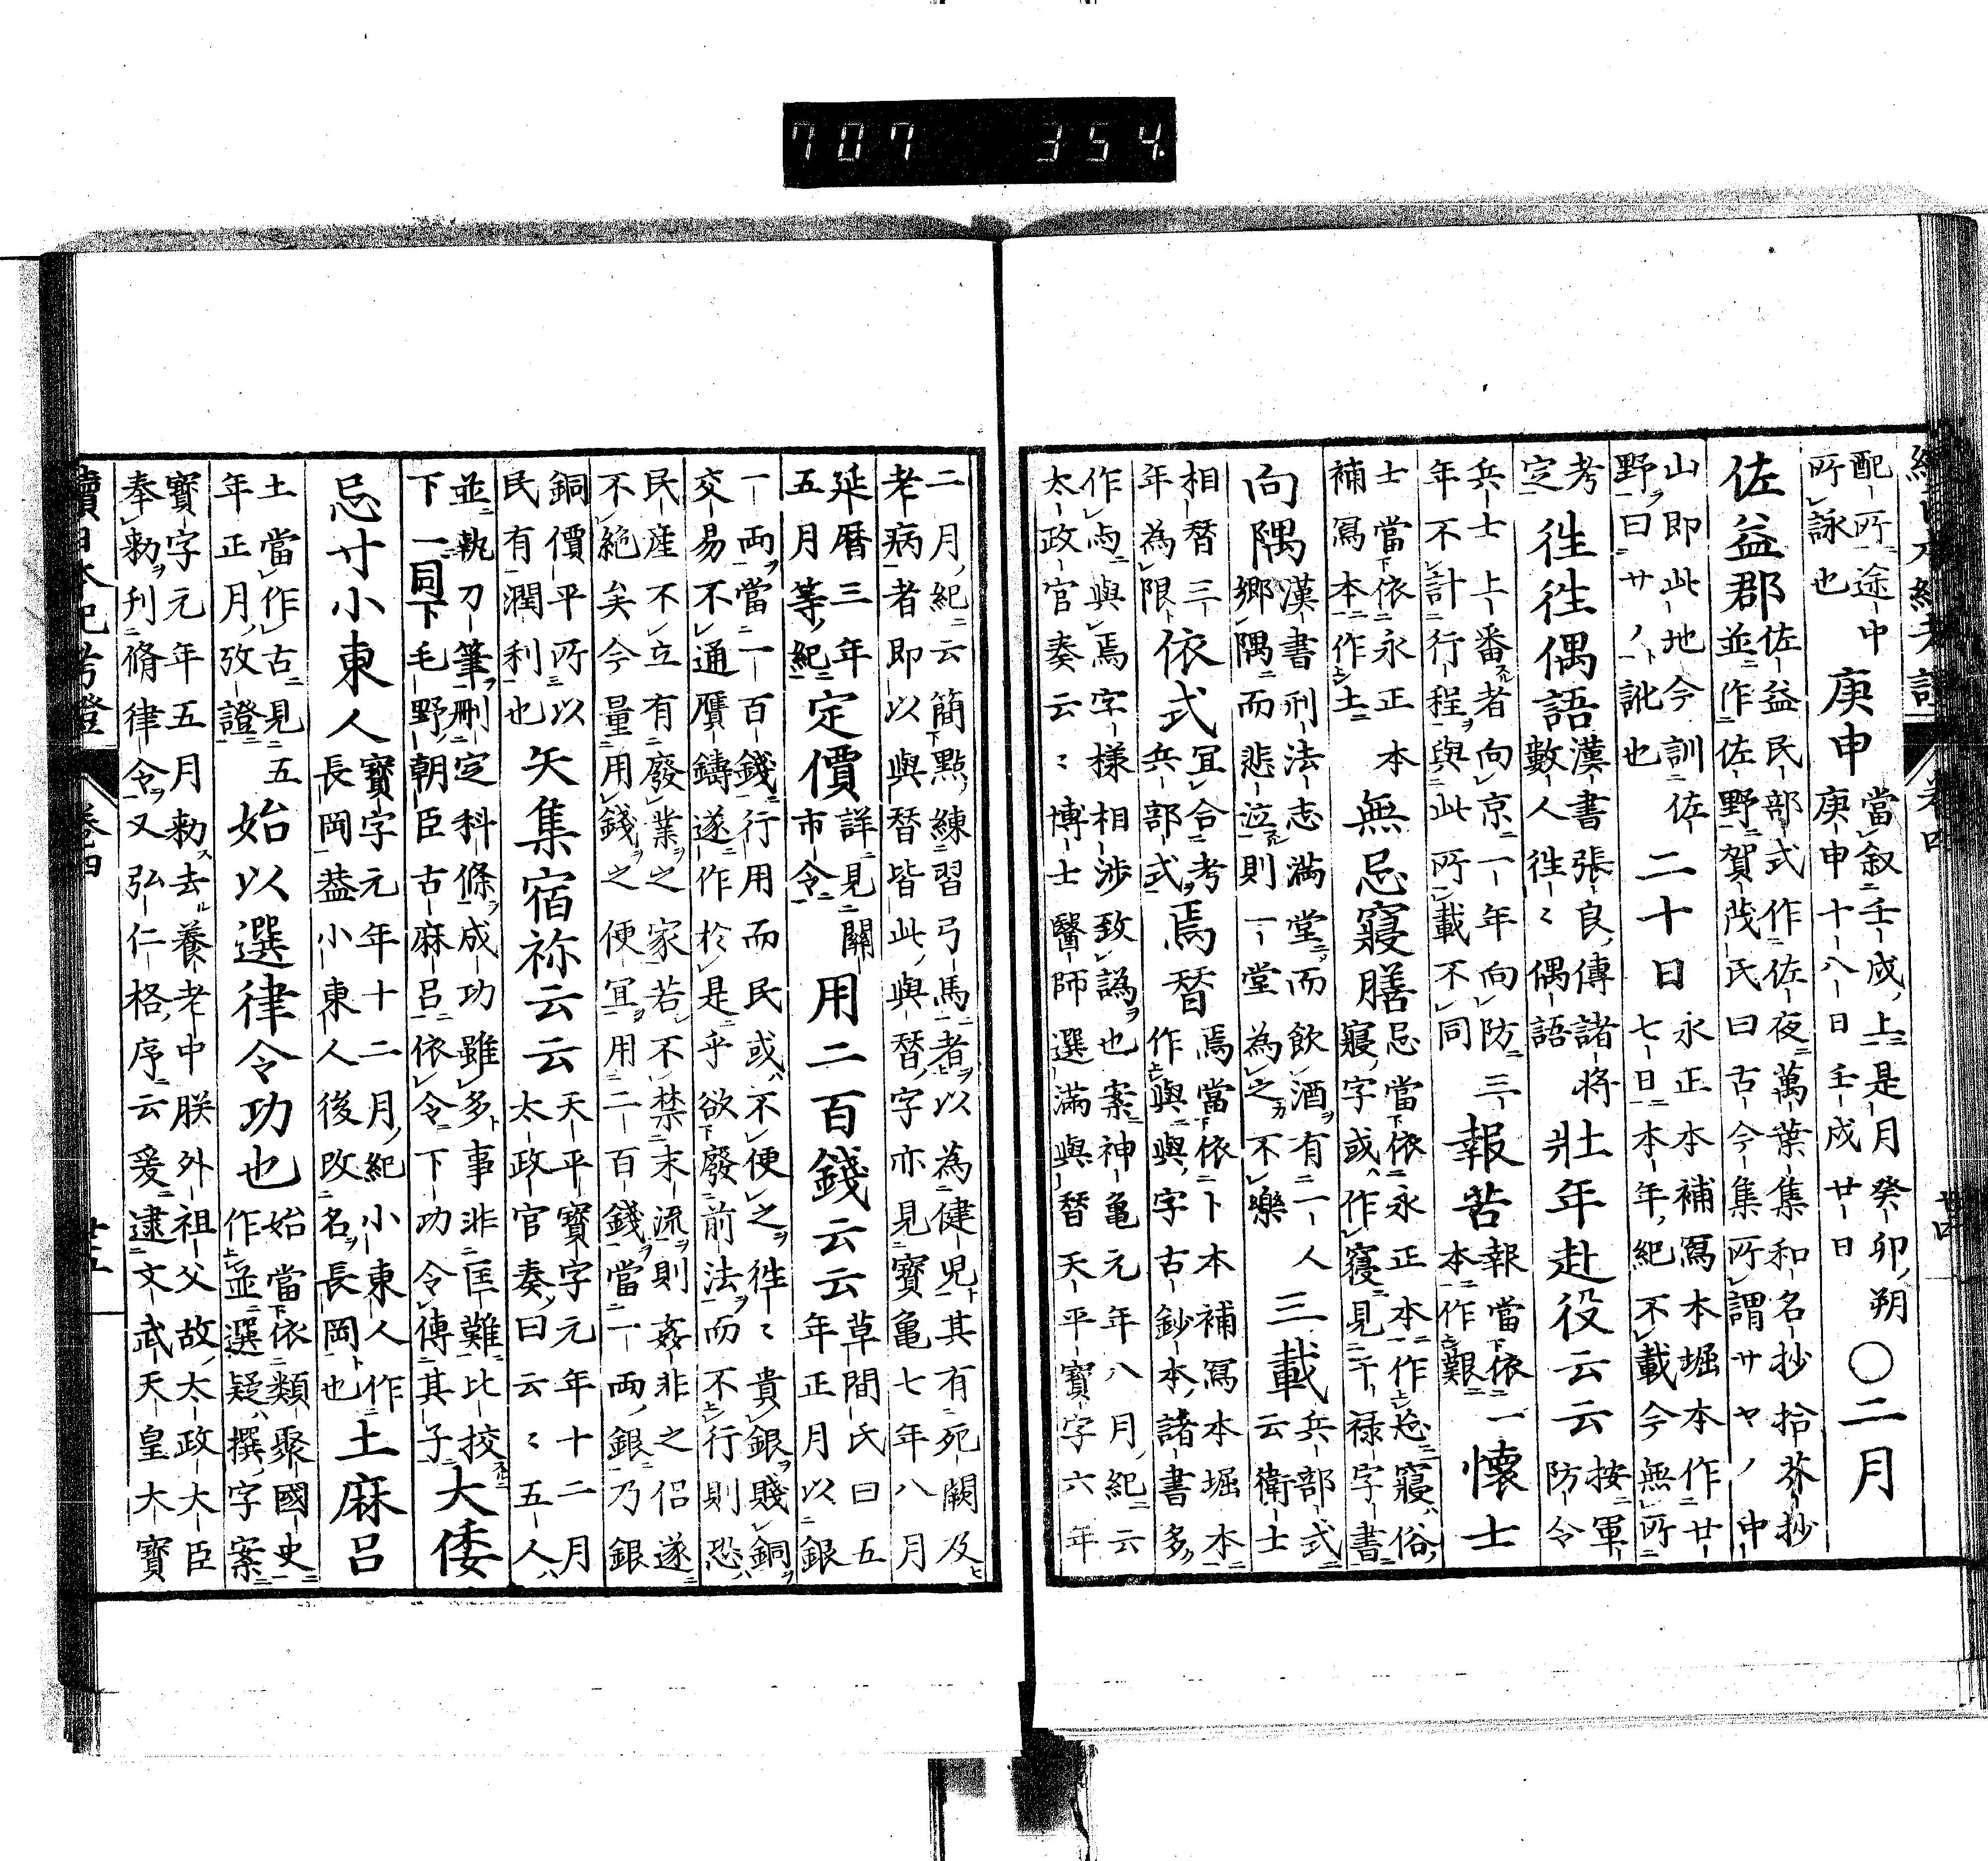 707 354.
配所途中
所詠也
庚申
當叙壬戌上是月癸卯朔
庚申十八日壬戌廿日
〇二月
佐益郡
佐益民部式作佐夜萬葉集和名抄拾芥抄
並作佐野賀茂氏曰古今集所謂サヤノ中
山即此地今訓佐
野曰サノト訛也
二十日
永正本補寫本堀本作廿
七日本年紀不載今無所
考
定
徃徃偶語
漢書張良傳諸將
數人徃〻偶語
壯年赴役云云
按軍
防令
兵士上番者向京一年向防三
年不計行程與此所載不同
報苦
報當依一
本作艱
懷士
士當依永正本
補寫本作土
無忌寢膳
忌當依永正本作忘寢俗
寢字或作寑見干禄字書
向隅
漢書刑法志滿堂而飲酒有一人
郷隅而悲泣則一堂為之不樂
三載
兵部式
云衛士
相替三
年為限
依式
冝合考
兵部式
焉替
焉當依卜本補寫本堀本
作與與字古鈔本諸書多
作与與焉字様相涉致譌也案神亀元年八月紀云
太政官奏云〻博士醫師選滿與替天平寶字六年
二月紀云簡點練習弓馬者以為健児其有死闕及
老病者即以與替皆此與替字亦見寶亀七年八月
延暦三年
五月等紀
定價
詳見關
市令
用二百錢云云
草間氏曰五
年正月以銀
一兩當一百錢行用而民或不便之徃〻貴銀賤銅
交易不通贋鑄遂作於是乎欲廢前法而不行則恐
民産不立有廢業之家若不禁末流則姦非之侶遂
不絶矣今量用錢之便冝用二百錢當一兩銀乃銀
銅價平所以
民有潤利也
矢集宿祢云云
天平寶字元年十二月
太政官奏曰云〻五人
並執刀筆刪定科條成功雖多事非匡難比挍
下一同下毛野朝臣古麻呂依令下功令傳其子
大倭
忌寸小東人
寶字元年十二月紀小東人作
長岡葢小東人後改名長岡也
土麻呂
土當作古見五
年正月攷證
始以選律令功也
始當依類聚國史
作並選疑撰字案
寶字元年五月勅去養老中朕外祖父故太政大臣
奉勅刋脩律令又弘仁格序云爰逮文武天皇大寳
續日本紀考證
卷四
廿五